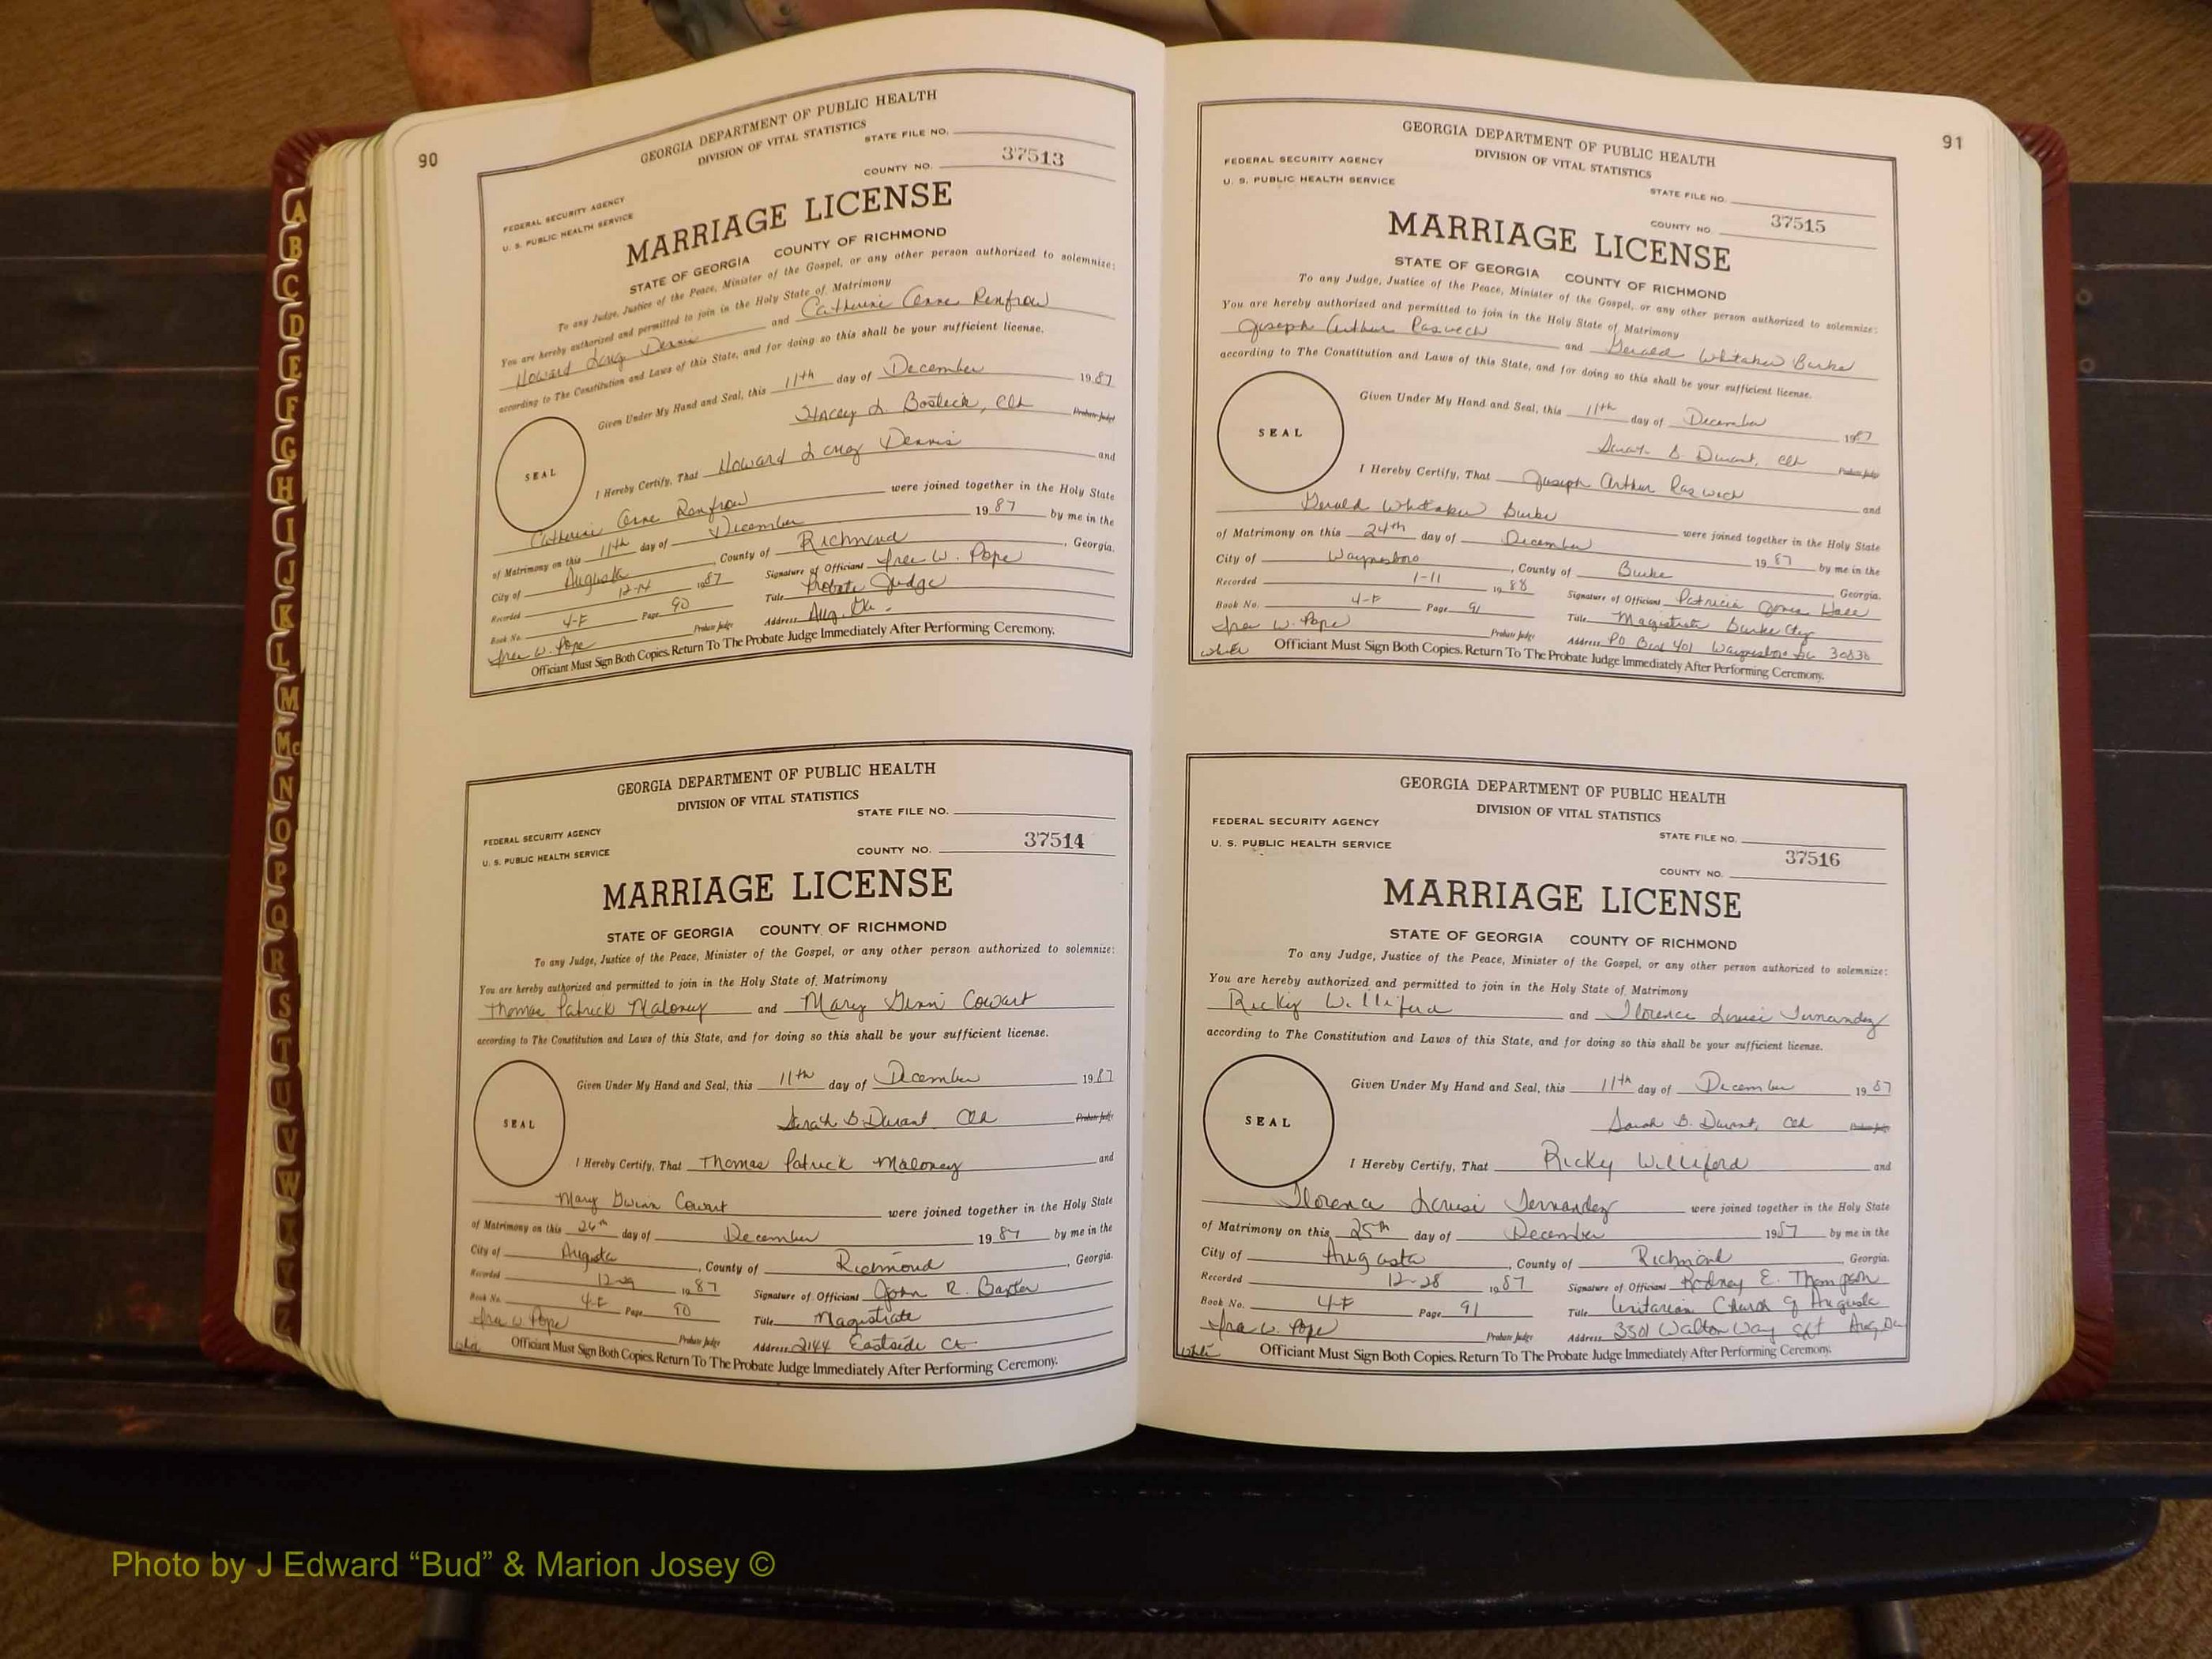 90
GEORGIA DEPARTMENT OF PUBLIC HEALTH
DIVISION OF VITAL STATISTICS
STATE FILE NO.
FEDERAL SECURITY AGENCY
U. S. PUBLIC HEALTH SERVICE
COUNTY NO. 37513
MARRIAGE LICENSE
STATE OF GEORGIA COUNTY OF RICHMOND
To any Judge, Justice of the Peace, Minister of the Gospel, or any other person authorized to solemnize:
You are hereby authorized and permitted to join in the Holy State of Matrimony
Howard Dennis and Catherine Anne Renfrow
according to The Constitution and Laws of this State, and for doing so this shall be your sufficient license.
Given Under My Hand and Seal, this 11th day of December 1987
SEAL
Stacey L. Clk Probate Judge
I Hereby Certify, That Howard Dennis and
Catherine Anne Renfrow were joined together in the Holy State
of Matrimony on this 11th day of December 1987 by me in the
City of Augusta, County of Richmond, Georgia.
Recorded 12-14 1987 Signature of Officiant W. Pope
Book No. 4-F Page 90 Title Probate Judge
W. Pope Probate Judge Address Aug. Ga.
Officiant Must Sign Both Copies. Return To The Probate Judge Immediately After Performing Ceremony.
GEORGIA DEPARTMENT OF PUBLIC HEALTH
DIVISION OF VITAL STATISTICS
STATE FILE NO.
FEDERAL SECURITY AGENCY
U. S. PUBLIC HEALTH SERVICE
COUNTY NO. 37514
MARRIAGE LICENSE
STATE OF GEORGIA COUNTY OF RICHMOND
To any Judge, Justice of the Peace, Minister of the Gospel, or any other person authorized to solemnize:
You are hereby authorized and permitted to join in the Holy State of Matrimony
Thomas Patrick Maloney and Mary Cowart
according to The Constitution and Laws of this State, and for doing so this shall be your sufficient license.
Given Under My Hand and Seal, this 11th day of December 1987
SEAL
Sarah B Durant Clk Probate Judge
I Hereby Certify, That Thomas Patrick Maloney and
Mary Gwinn Cowart were joined together in the Holy State
of Matrimony on this day of December 1987 by me in the
City of Augusta, County of Richmond, Georgia.
Recorded 12-29 1987 Signature of Officiant John R. Baxter
Book No. 4-F Page 90 Title Magistrate
Ira W. Pope Probate Judge Address 2144 Eastside Ct
White Officiant Must Sign Both Copies. Return To The Probate Judge Immediately After Performing Ceremony.
91
GEORGIA DEPARTMENT OF PUBLIC HEALTH
DIVISION OF VITAL STATISTICS
FEDERAL SECURITY AGENCY
U. S. PUBLIC HEALTH SERVICE
STATE FILE NO.
COUNTY NO. 37515
MARRIAGE LICENSE
STATE OF GEORGIA COUNTY OF RICHMOND
To any Judge, Justice of the Peace, Minister of the Gospel, or any other person authorized to solemnize:
You are hereby authorized and permitted to join in the Holy State of Matrimony
Joseph Arthur and Whitaker Burke
according to The Constitution and Laws of this State, and for doing so this shall be your sufficient license.
Given Under My Hand and Seal, this 11th day of December 1987
SEAL
Sarah B. Durant, Clk Probate Judge
I Hereby Certify, That Joseph Arthur and
Whitaker Burke were joined together in the Holy State
of Matrimony on this 24th day of December 1987 by me in the
City of Waynesboro, County of Burke, Georgia.
Recorded 1-11 1988 Signature of Officiant Patricia Jones
Book No. 4-F Page 91 Title Magistrate Burke Cty
Ira W. Pope Probate Judge Address PO Box 401 Waynesboro Ga 30830
White Officiant Must Sign Both Copies. Return To The Probate Judge Immediately After Performing Ceremony.
GEORGIA DEPARTMENT OF PUBLIC HEALTH
DIVISION OF VITAL STATISTICS
FEDERAL SECURITY AGENCY
U. S. PUBLIC HEALTH SERVICE
STATE FILE NO.
COUNTY NO. 37516
MARRIAGE LICENSE
STATE OF GEORGIA COUNTY OF RICHMOND
To any Judge, Justice of the Peace, Minister of the Gospel, or any other person authorized to solemnize:
You are hereby authorized and permitted to join in the Holy State of Matrimony
Ricky Williford and Florence Louise Fernandez
according to The Constitution and Laws of this State, and for doing so this shall be your sufficient license.
Given Under My Hand and Seal, this 11th day of December 1987
SEAL
Sarah B. Durant, Clk Probate Judge
I Hereby Certify, That Ricky Williford and
Florence Louise Fernandez were joined together in the Holy State
of Matrimony on this 25th day of December 1987 by me in the
City of Augusta, County of Richmond, Georgia.
Recorded 12-28 1987 Signature of Officiant Rodney E. Thompson
Book No. 4-F Page 91 Title Unitarian Church of Augusta
Ira W. Pope Probate Judge Address 3501 Walton Way Ext Aug, Ga
White Officiant Must Sign Both Copies. Return To The Probate Judge Immediately After Performing Ceremony.
A
B
C
D
E
F
G
H
I
J
K
L
M
Mc
N
O
P
Q
R
S
T
U
V
W
Z
Photo by J Edward “Bud” & Marion Josey ©